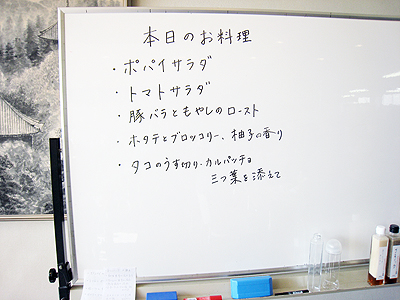 本日のお料理
・ポパイサラダ
・トマトサラダ
・豚バラともやしのロースト
・ホタテとブロッコリー、柚子の香り
・タコのうす切り、カルパッチョ
三つ葉を添えて